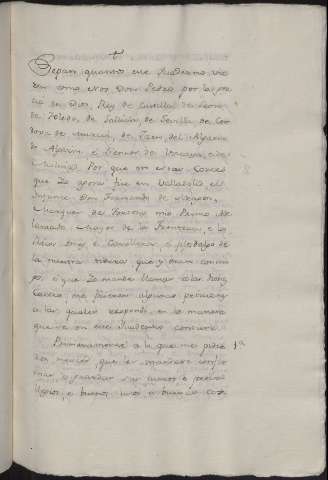 Sepan quantos este Quaderno vie
ren como Nos Don Pedro por la gra
cia de Dios, Rey de Castilla de Leon
de Toledo, de Galicia, de Sevilla de Cor
dova de Murcia, de Jaen, del Algarve
de Algecira, e Señor de Vizcaya, e de
Molina: Por que en estas Cortes
que Yo agora fice en Valladolid el
Infante Don Fernando de Aragon,
Marques de Tortosa mio Primo Ade
lantado Mayor de la Frontera, e los
Ricos omes, e Cavalleros, e fijosdalgo de
la mi tierra que y eran conmi
go, e que Yo mandé llamar a las
Cortes, me ficieron algunas peticiones
a las quales respondi en la manera
que en este Quaderno
Primeramente a lo que me pidie 1ª
ron merced, que les mandase confir
mar, e guardar sus fueros e privi
llegios, e buenos usos e buenas cos